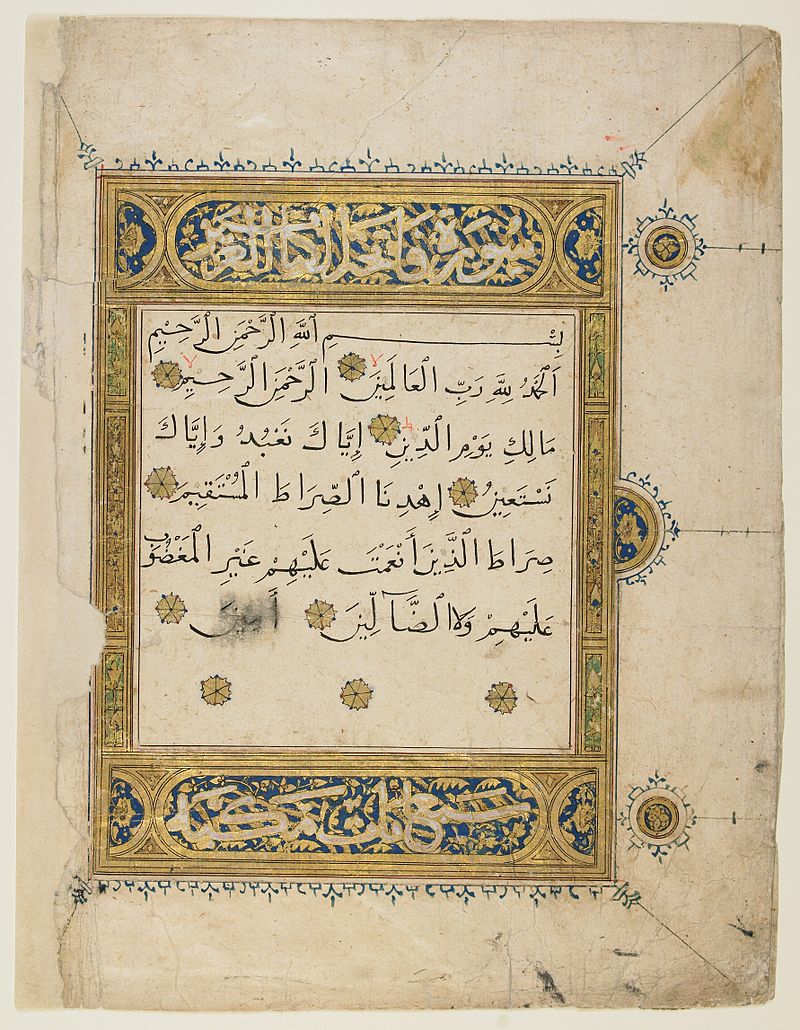 سورة فاتحة الكتاب
بِسْمِ اللَّهِ الرَّحْمَنِ الرَّحِيمِ
اَلْحَمْدُ لِلَّهِ رَبِّ الْعَالَمِينَ لا الرَّحْمَنِ الرَّحِيمِ لا
مَالِكِ يَوْمِ الدِّينِ ط إِيَّاكَ نَعْبُدُ وَإِيَّاكَ
نَسْتَعِينُ إِهْدِنَا الصِّرَاطَ الْمُسْتَقِيمَ
صِرَاطَ الَّذِينَ أَنْعَمْتَ عَلَيْهِمْ غَيْرِ الْمَغْضُوبِ
عَلَيْهِمْ وَلَا الضَّآلِّينَ أَمِينَ
سبع ايات مكية